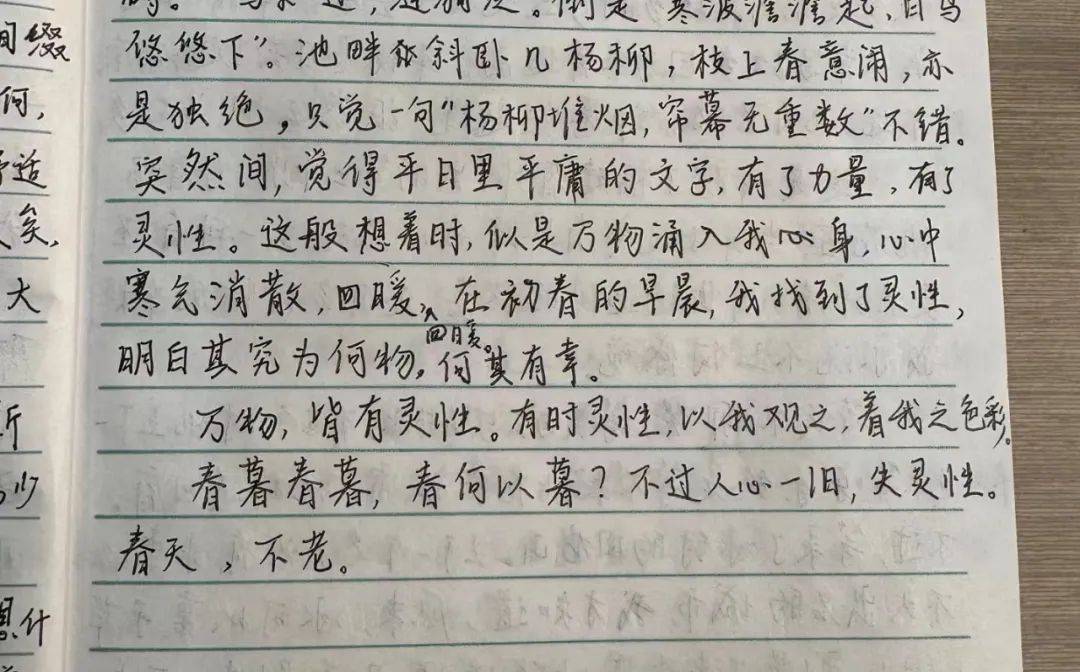 倒是“寒波澹澹起,白鸟
悠悠下”。池畔斜卧几杨柳,枝上春意闹,亦
是独绝,只觉一句“杨柳堆烟,帘幕无重数”不错。
突然间,觉得平日里平庸的文字,有了力量,有了
灵性。这般想着时,似是万物涌入我心身,心中
寒气消散,回暖,在初春的早晨,我找到了灵性,
回暖。
明白其究为何物。何其有幸。
万物,皆有灵性。有时灵性,以我观之,着我之色彩。
春暮春暮,春何以暮?不过人心一旧,失灵性。
春天,不老。
间缀
何,
适
矣,
大
斤
少
什